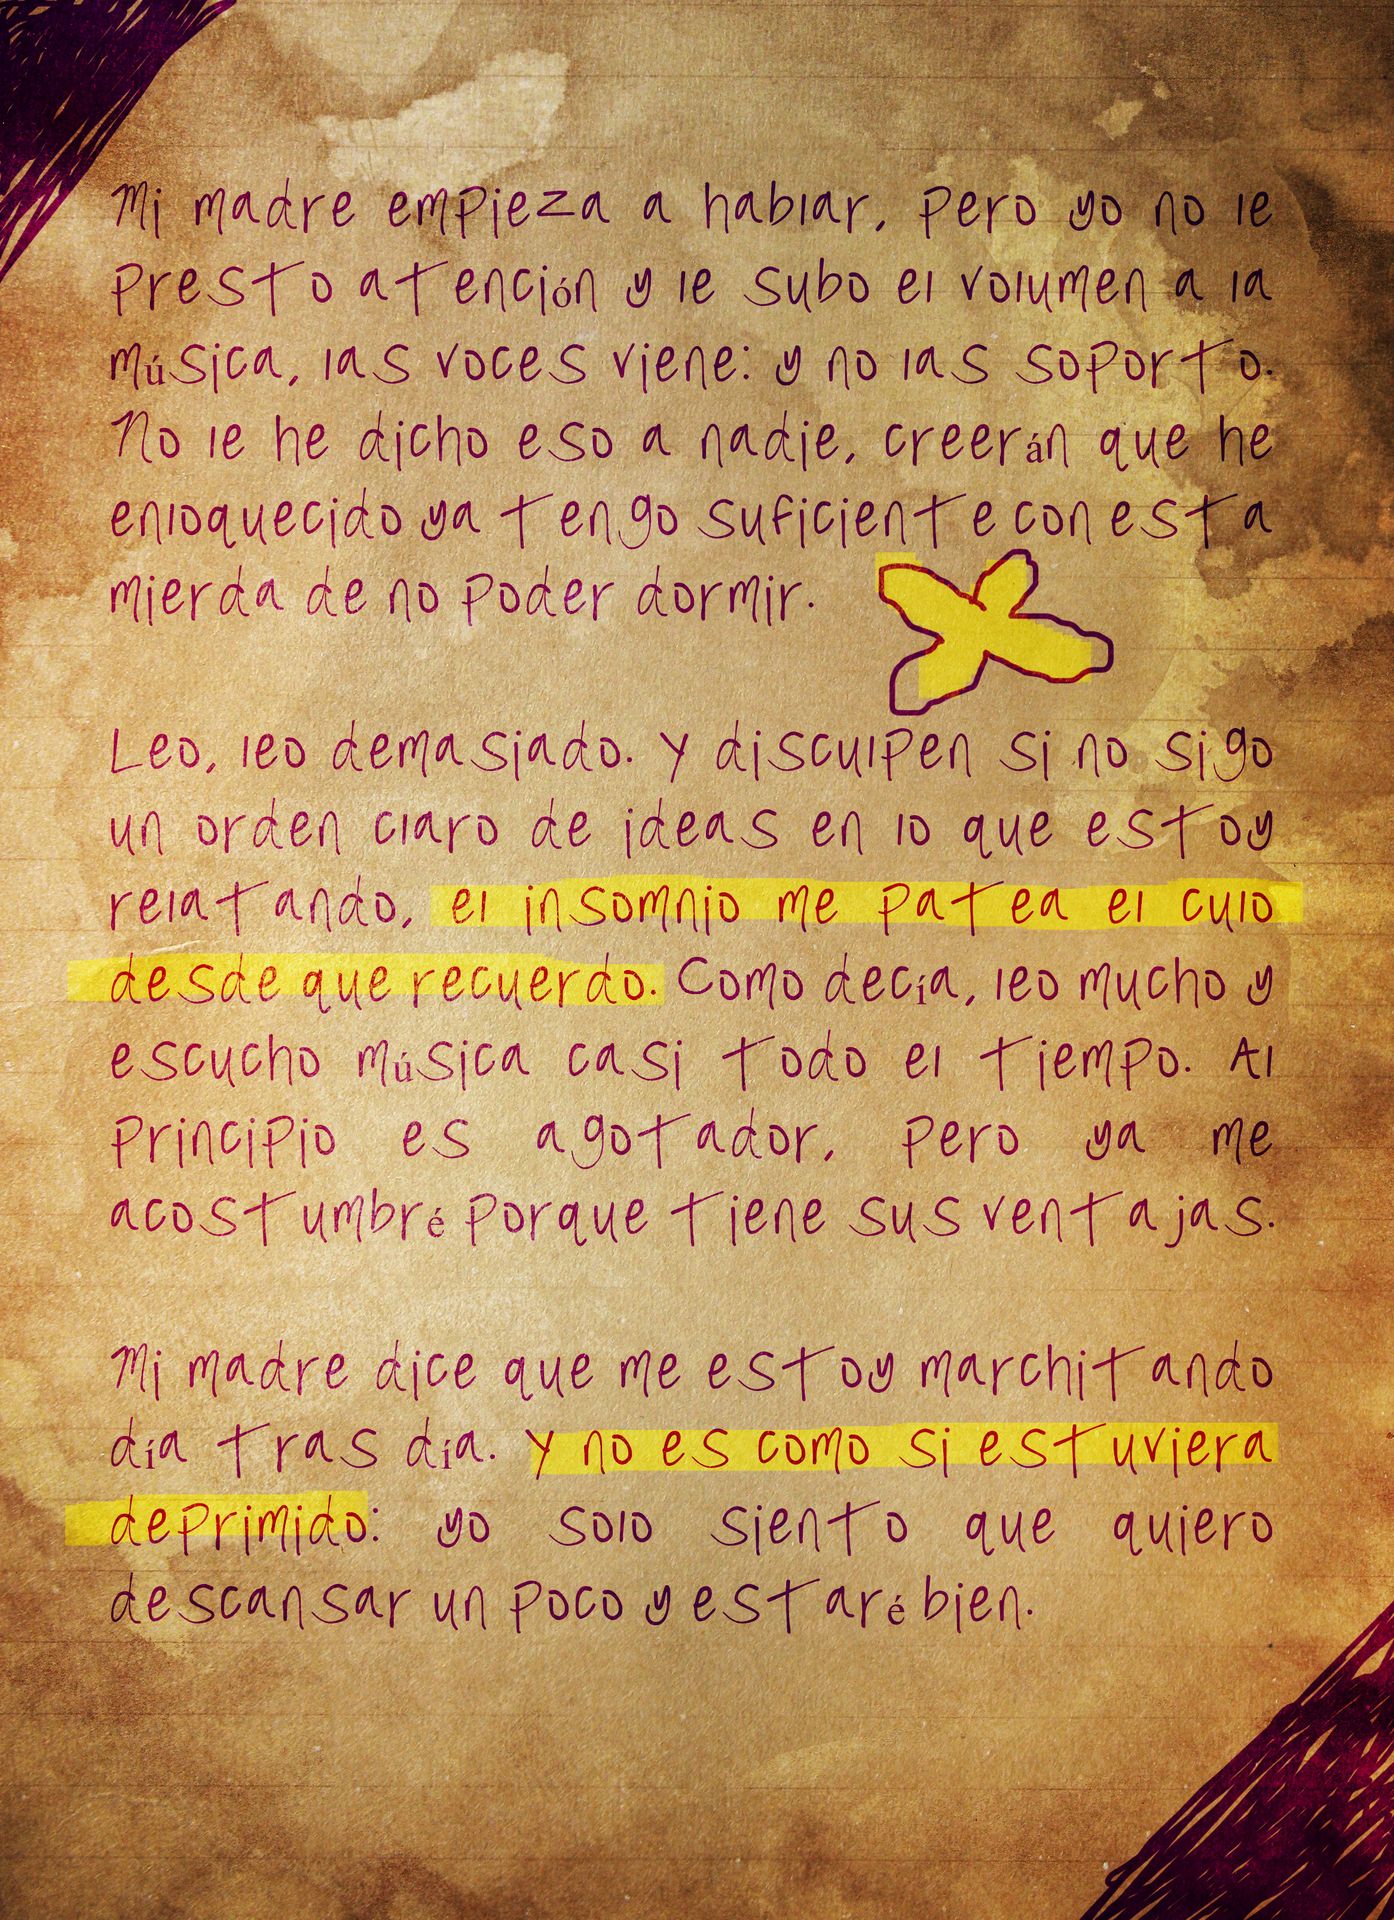 Mi madre empieza a hablar, pero yo no le
presto atención y le subo el volumen a la
música, las voces viene: y no las soporto.
No le he dicho eso a nadie, creerán que he
enloquecido ya tengo suficiente con esta
mierda de no poder dormir.
Leo, leo demasiado. Y disculpen si no sigo
un orden claro de ideas en lo que estoy
relatando, el insomnio me patea el culo
desde que recuerdo. Como decía, leo mucho y
escucho música casi todo el tiempo. Al
principio es agotador, pero ya me
acostumbré porque tiene sus ventajas.
Mi madre dice que me estoy marchitando
día tras día. Y no es como si estuviera
deprimido: yo solo siento que quiero
descansar un poco y estaré bien.